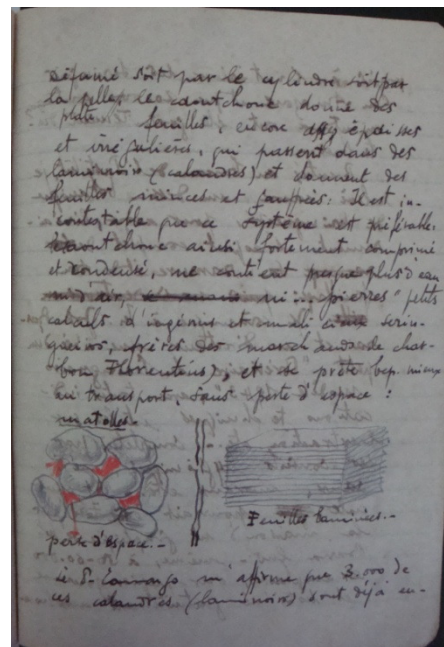 défumé soit par le cylindre soit par
la pelle, le caoutchouc donne des
feuilles, encore assez épaisses
et irrégulières, qui passent dans des
laminoirs (calandres) et donnent des
feuilles minces et gaufrées: Il est in-
contestable que ce système est préférable.
caoutchouc ainsi fortement comprimé
et condensé, ne contient presque plus d'eau
ni d'air, ni... "pierres" petits
d'ingénus et
frères des marchands de char-
bon Florentins), et se prête bcp. mieux
au transport, sans perte d'espace :
perte d'espace.-
Feuilles laminées.-
m'affirme que 3.000 de
ces calandres (laminoirs) sont déjà en-